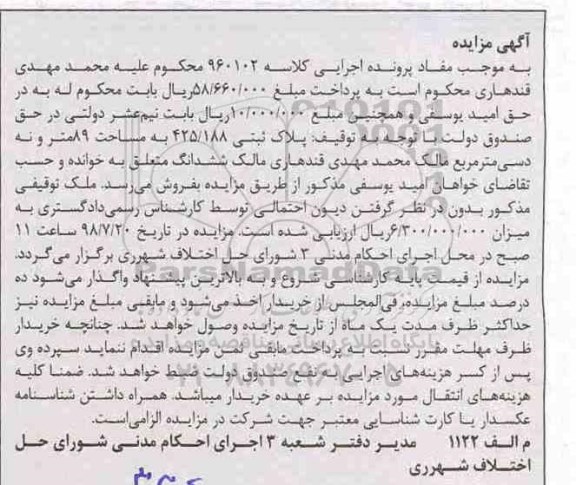 آگهی مزایده
به موجب مفاد پرونده اجرایی کلاسه ۹۶۰۱۰۲ محکوم علیه محمد مهدی
قندهاری محکوم است به پرداخت مبلغ ۵۸/۶۶۰/۰۰۰ریال بابت محکوم له به در
حق امید یوسفی و همچنین مبلغ ۱۰/۰۰۰/۰۰۰ریال بابت نیم‌عشر دولتی در حق
صندوق دولت با توجه به توقیف: پلاک ثبتی ۴۲۵/۱۸۸ به مساحت ۸۹متر و نه
دسی‌مترمربع مالک محمد مهدی قندهاری مالک ششدانگ متعلق به خوانده و حسب
تقاضای خواهان امید یوسفی مذکور از طریق مزایده بفروش می‌رسد. ملک توقیفی
مذکور بدون در نظر گرفتن دیون احتمالی توسط کارشناس رسمی‌دادگستری به
میزان ۶/۳۰۰/۰۰۰/۰۰۰ریال ارزیابی شده است. مزایده در تاریخ ۹۸/۷/۲۰ ساعت ۱۱
صبح در محل اجرای احکام مدنی ۳ شورای حل اختلاف شهرری برگزار می‌گردد.
مزایده از قیمت پایه کارشناسی شروع و به بالاترین پیشنهاد واگذار می‌شود ده
درصد مبلغ مزایده، فی‌المجلس از خریدار اخذ می‌شود و مابقی مبلغ مزایده نیز
حداکثر ظرف مدت یک ماه از تاریخ مزایده وصول خواهد شد. چنانچه خریدار
ظرف مهلت مقرر نسبت به پرداخت مابقی ثمن مزایده اقدام ننماید سپرده وی
پس از کسر هزینه‌های اجرایی به نفع صندوق دولت ضبط خواهد شد. ضمنا کلیه
هزینه‌های انتقال مورد مزایده بر عهده خریدار میباشد. همراه داشتن شناسنامه
عکسدار یا کارت شناسایی معتبر جهت شرکت در مزایده الزامی‌است.
م الف ۱۱۲۲ مدیر دفتر شعبه ۳ اجرای احکام مدنی شورای حل
اختلاف شهرری